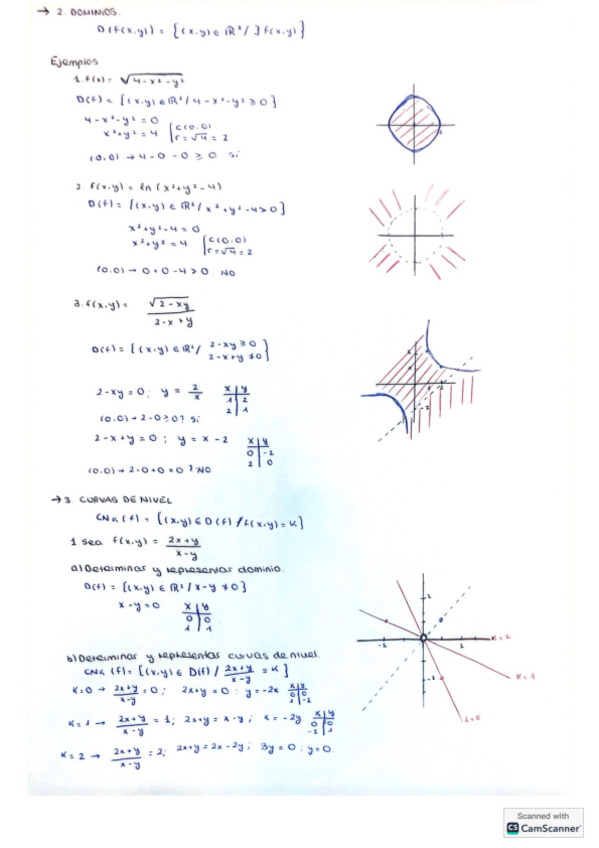 → 2. DOMINIOS.
D(f(x,y)) = {(x,y) ∈ IR²/ ∃ f(x,y)}
Ejemplos
1. f(x) = √4-x²-y²
D(f) = {(x,y) ∈ IR²/ 4-x²-y² ≥ 0}
4-x²-y² = 0
x²+y² = 4 { C(0,0) r = √4 = 2
(0,0) → 4-0-0 ≥ 0 Si
2. f(x,y) = ln (x²+y²-4)
D(f) = {(x,y) ∈ IR²/ x²+y²-4 > 0}
x²+y²-4 = 0
x²+y² = 4 { C(0,0) r = √4 = 2
(0,0) → 0+0-4 > 0 NO
3. f(x,y) = √2-xy / 2-x+y
D(f) = {(x,y) ∈ IR²/ 2-xy ≥ 0 2-x+y ≠ 0}
2-xy = 0; y = 2/x
x y
1 2
2 1
(0,0) → 2-0 ≥ 0? Si
2-x+y = 0; y = x-2
x y
0 -2
2 0
(0,0) → 2-0+0 = 0? NO
→ 3. CURVAS DE NIVEL
CNk (f) = {(x,y) ∈ D(f) / f(x,y) = K}
1 sea f(x,y) = 2x+y / x-y
a) Determinar y representar dominio.
D(f) = {(x,y) ∈ IR²/ x-y ≠ 0}
x-y = 0
x y
0 0
1 1
b) Determinar y representar curvas de nivel.
CNk (f) = {(x,y) ∈ D(f) / 2x+y / x-y = K}
K=0 → 2x+y / x-y = 0; 2x+y = 0; y = -2x
x y
0 0
1 -2
K=1 → 2x+y / x-y = 1; 2x+y = x-y; x = -2y
x y
0 0
-2 1
K=2 → 2x+y / x-y = 2; 2x+y = 2x-2y; 3y = 0; y = 0.
K=2
K=1
Scanned with
CS CamScanner